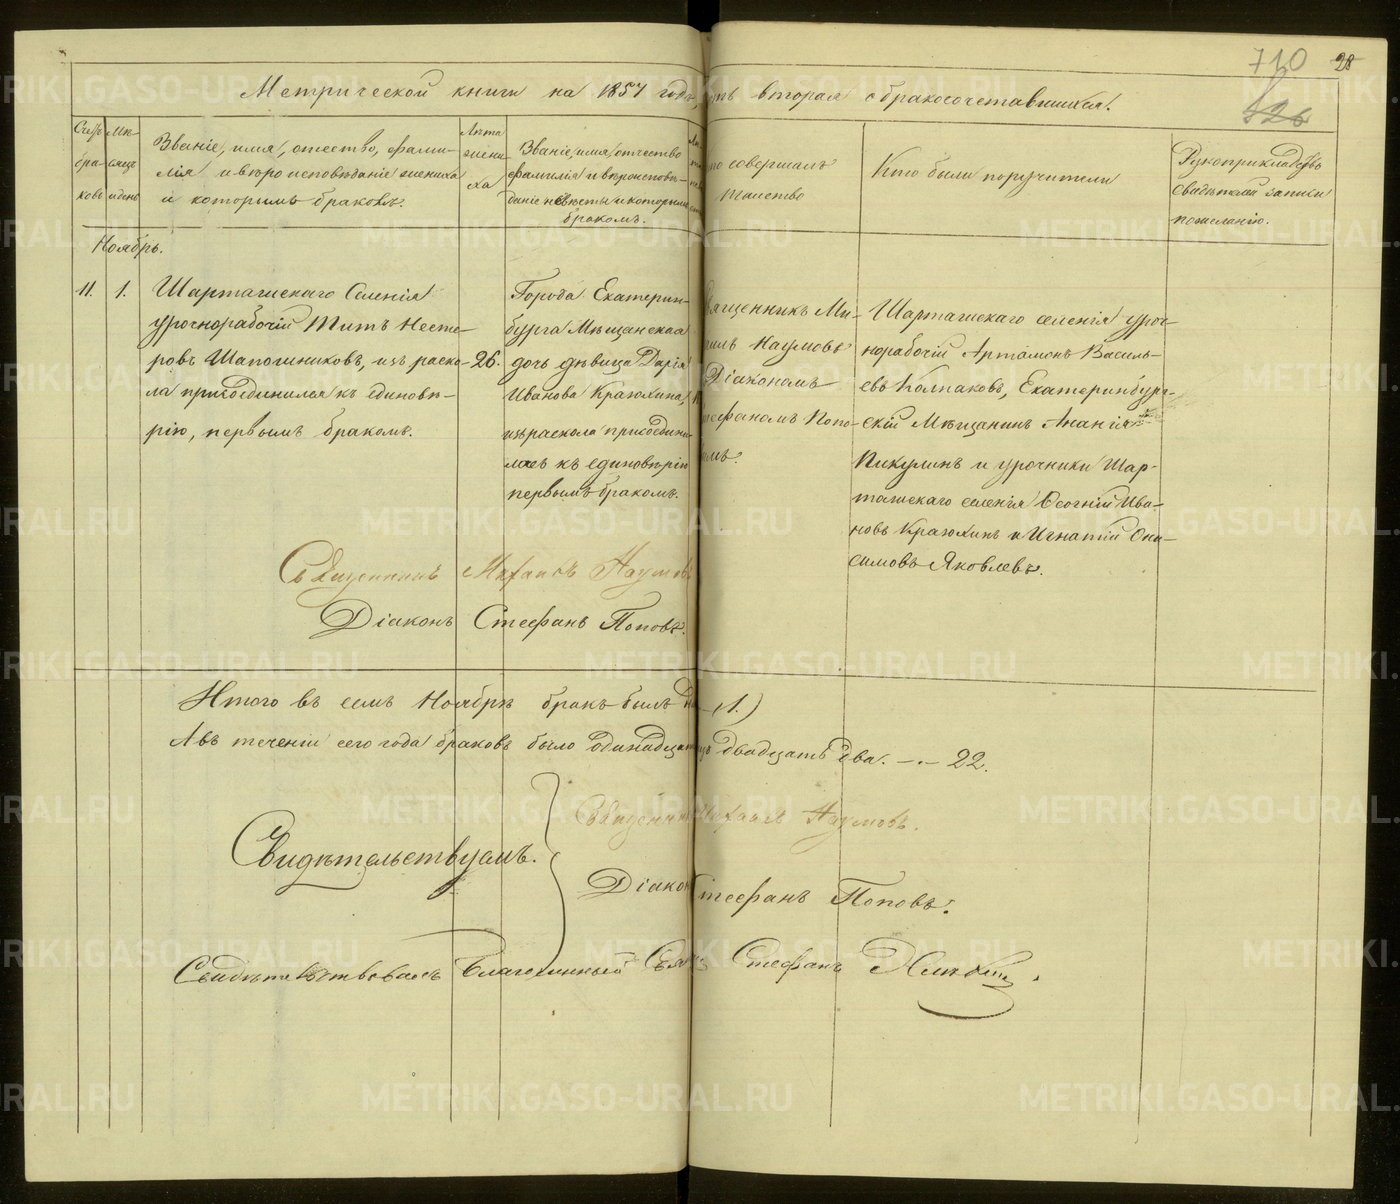 710 28
526
Метрической книги на 1857 годъ, часть вторая о бракосочетавшихся.
Счетъ браковъ
Мѣсяцъ и день
Званіе, имя, отчество, фами-
лія и вѣроисповѣданіе жениха
и которымъ бракомъ.
Лѣта
жени-
ха
Званіе, имя, отчество
фамилія и вѣроисповѣ-
даніе невѣсты и которымъ
бракомъ.
то совершалъ
таинство
Кто были поручители
Рукоприкладство
свидѣтелей записи
по желанію.
Ноябрь.
11. 1.
Шарташскаго Селенія
урочнорабочій Титъ Несте-
ровъ Шапошниковъ, изъ раско-
ла присоединился къ единовѣ-
рію, первымъ бракомъ.
26.
Города Екатерин-
бурга Мѣщанская
дочь дѣвица Дарія
Иванова Краюхина,
изъ раскола присоедини-
лась къ единовѣрію
первымъ бракомъ.
вященникъ Ми-
хаилъ Наумовъ
Діакономъ
тефаномъ Попо-
вымъ.
Шарташскаго селенія уроч-
норабочій Артамонъ Василь-
евъ Колпаковъ, Екатеринбург-
скій Мѣщанинъ Ананій
Пикулинъ и урочники Шар-
ташскаго селенія Ѳеогній Ива-
новъ Краюхинъ и Игнатій Они-
симовъ Яковлевъ.
Священникъ Михаилъ Наумовъ
Діаконъ Стефанъ Поповъ.
Итого въ семъ Ноябрѣ бракъ былъ (1.)
А въ теченіи сего года браковъ было двадцать два. —.— 22.
Свидѣтельствуемъ.
Священникъ Михаилъ Наумовъ.
Діаконъ Стефанъ Поповъ.
Свидѣтельствовалъ Благочинный Стефанъ
METRIKI.GASO-URAL.RU